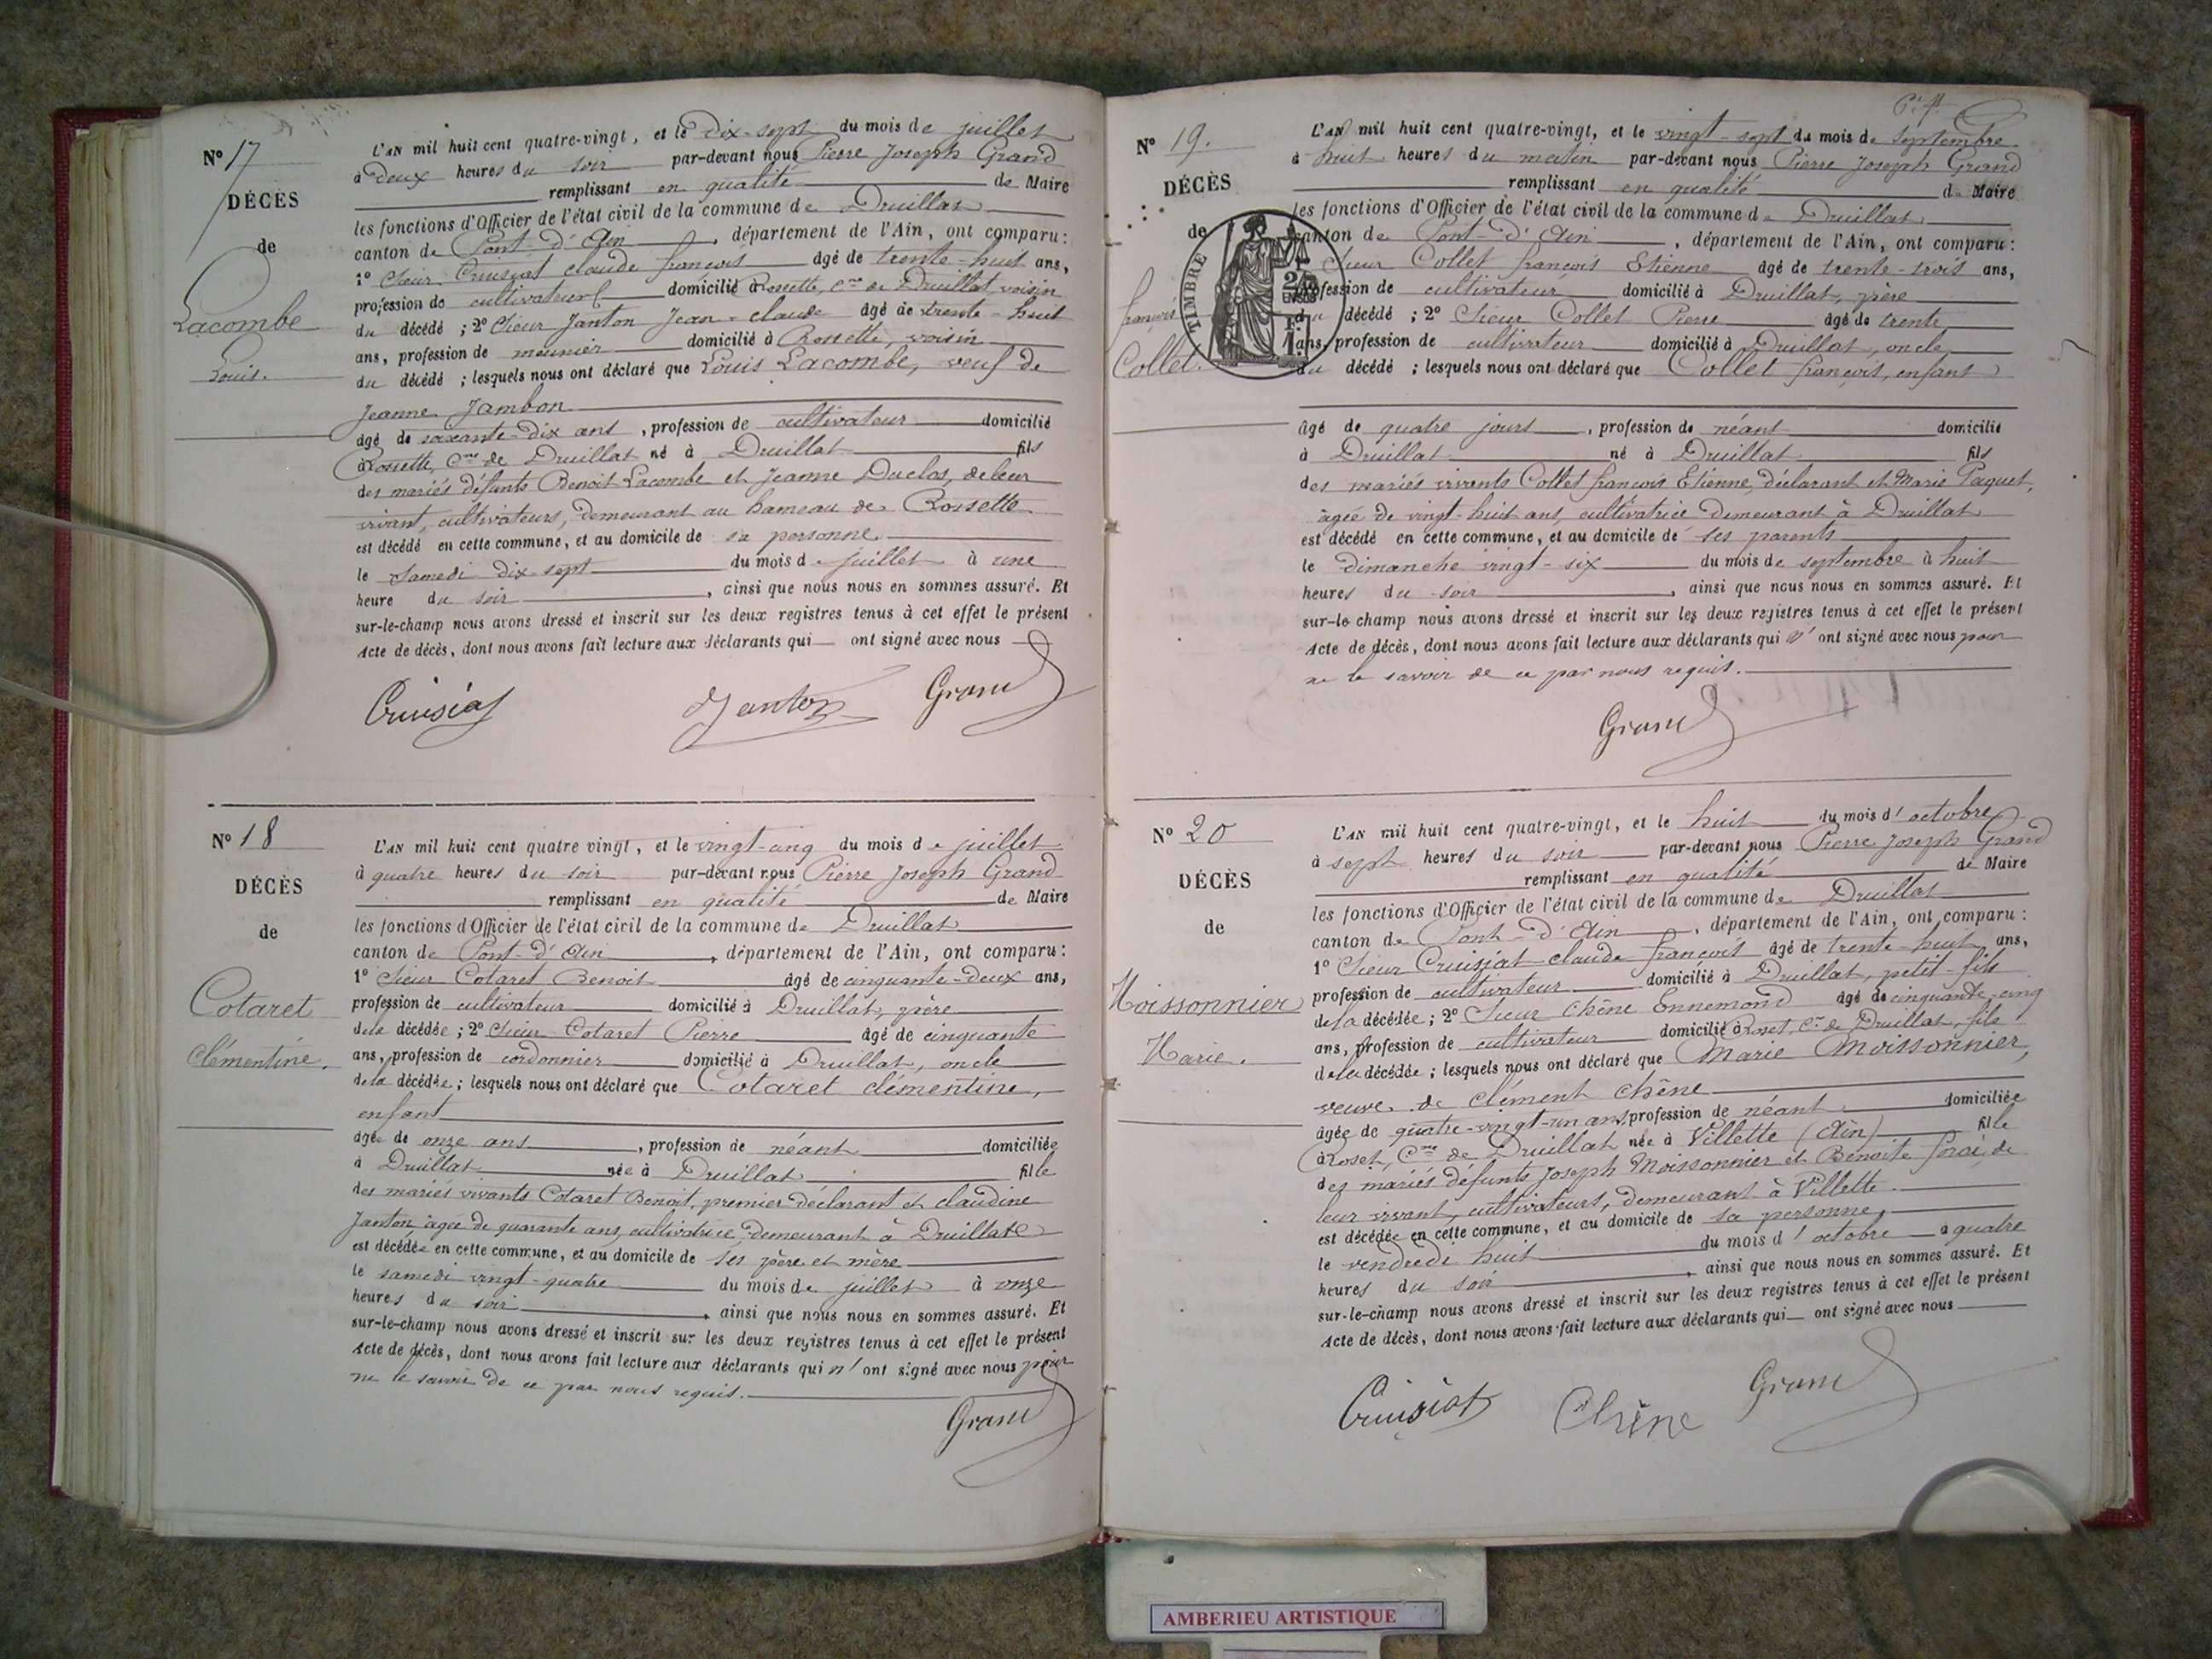 N° 17
DÉCÈS
de
Lacombe
Louis.
L'AN mil huit cent quatre-vingt, et le dix-sept du mois de juillet
à deux heures du soir par-devant nous Pierre Joseph Grand
remplissant en qualité de Maire
les fonctions d'Officier de l'état civil de la commune de Druillat
canton de Pont-d'Ain, département de l'Ain, ont comparu:
1° Sieur Cruisiat claude françois âgé de trente-huit ans,
profession de cultivateur domicilié à Rossette, Cne de Druillat voisin
du décédé; 2° Sieur Janton Jean-claude âgé de trente-huit
ans, profession de meunier domicilié à Rossette, voisin
du décédé; lesquels nous ont déclaré que Louis Lacombe, veuf de
Jeanne Jambon
âgé de soixante-dix ans, profession de cultivateur domicilié
à Rossette, Cne de Druillat né à Druillat fils
des mariés défunts Benoit Lacombe et Jeanne Duclos, de leur
vivant, cultivateurs, demeurant au hameau de Rossette
est décédé en cette commune, et au domicile de sa personne.
le Samedi dix-sept du mois de juillet à une
heure du soir, ainsi que nous nous en sommes assuré. Et
sur-le-champ nous avons dressé et inscrit sur les deux registres tenus à cet effet le présent
Acte de décès, dont nous avons fait lecture aux déclarants qui ont signé avec nous
Cruisiat Janton Grand
N° 18
DÉCÈS
de
Cotaret
Clémentine.
L'AN mil huit cent quatre vingt, et le vingt-cinq du mois de juillet
à quatre heures du soir par-devant nous Pierre Joseph Grand
remplissant en qualité de Maire
les fonctions d'Officier de l'état civil de la commune de Druillat
canton de Pont-d'Ain, département de l'Ain, ont comparu:
1° Sieur Cotaret Benoit âgé de cinquante-deux ans,
profession de cultivateur domicilié à Druillat, père
de la décédée; 2° Sieur Cotaret Pierre âgé de cinquante
ans, profession de cordonnier domicilié à Druillat, oncle
de la décédée; lesquels nous ont déclaré que Cotaret clémentine,
enfant
âgée de onze ans, profession de néant domiciliée
à Druillat née à Druillat fille
des mariés vivants Cotaret Benoit, premier déclarant et claudine
Janton, âgée de quarante ans, cultivatrice, demeurant à Druillat
est décédée en cette commune, et au domicile de ses père et mère
le samedi vingt-quatre du mois de juillet à onze
heures du soir, ainsi que nous nous en sommes assuré. Et
sur-le-champ nous avons dressé et inscrit sur les deux registres tenus à cet effet le présent
Acte de décès, dont nous avons fait lecture aux déclarants qui n'ont signé avec nous pour
ne le savoir de ce par nous requis.
Grand
N° 19.
DÉCÈS
de
françois
Collet.
TIMBRE
L'AN mil huit cent quatre-vingt, et le vingt-sept du mois de Septembre
à huit heures du matin par-devant nous Pierre Joseph Grand
remplissant en qualité de Maire
les fonctions d'Officier de l'état civil de la commune de Druillat
canton de Pont d'Ain, département de l'Ain, ont comparu:
Sieur Collet françois Etienne âgé de trente-trois ans,
profession de cultivateur domicilié à Druillat, père
du décédé; 2° Sieur Collet Pierre âgé de trente
ans, profession de cultivateur domicilié à Druillat, oncle
du décédé; lesquels nous ont déclaré que Collet françois, enfant
âgé de quatre jours, profession de néant domicilié
à Druillat né à Druillat fils
des mariés vivants Collet françois Etienne, déclarant et Marie Paquet,
âgée de vingt-huit ans, cultivatrice demeurant à Druillat
est décédé en cette commune, et au domicile de ses parents
le dimanche vingt-six du mois de septembre à huit
heures du soir, ainsi que nous nous en sommes assuré. Et
sur-le champ nous avons dressé et inscrit sur les deux registres tenus à cet effet le présent
Acte de décès, dont nous avons fait lecture aux déclarants qui n'ont signé avec nous pour
ne le savoir de ce par nous requis.
Grand
N° 20
DÉCÈS
de
Moissonnier
Marie.
L'AN mil huit cent quatre-vingt, et le huit du mois d'octobre
à sept heures du soir par-devant nous Pierre Joseph Grand
remplissant en qualité de Maire
les fonctions d'Officier de l'état civil de la commune de Druillat
canton de Pont-d'Ain, département de l'Ain, ont comparu:
1° Sieur Cruisiat claude françois âgé de trente-huit ans,
profession de cultivateur domicilié à Druillat, petit-fils
de la décédée; 2° Sieur Chêne Ennemond âgé de cinquante-cinq
ans, profession de cultivateur domicilié à Roset, Cne de Druillat, fils
de la décédée; lesquels nous ont déclaré que Marie Moissonnier,
veuve de Clément Chêne
âgée de quatre-vingt-un ans, profession de néant domiciliée
à Roset, Cne de Druillat née à Villette (Ain) fille
des mariés défunts Joseph Moissonnier et Benoite, de
leur vivant, cultivateurs, demeurant à Villette.
est décédée en cette commune, et au domicile de sa personne,
le vendredi huit du mois d'octobre à quatre
heures du soir, ainsi que nous nous en sommes assuré. Et
sur-le-champ nous avons dressé et inscrit sur les deux registres tenus à cet effet le présent
Acte de décès, dont nous avons fait lecture aux déclarants qui ont signé avec nous
Cruisiat Chêne Grand
AMBERIEU ARTISTIQUE